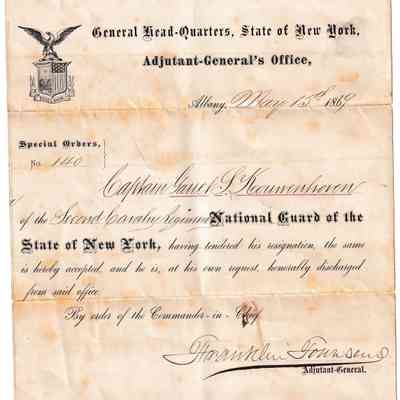 General Head-Quarters, State of New York,
Adjutant-General's Office,
Albany, May 15th 1869
Special Orders,
No. 140
Captain Garret S. Kouwenhoven
of the Second Cavalry Regiment National Guard of the
State of New York, having tendered his resignation, the same
is hereby accepted, and he is, at his own request, honorably discharged
from said office.
By order of the Commander-in-Chief.
Franklin Townsend
Adjutant-General.